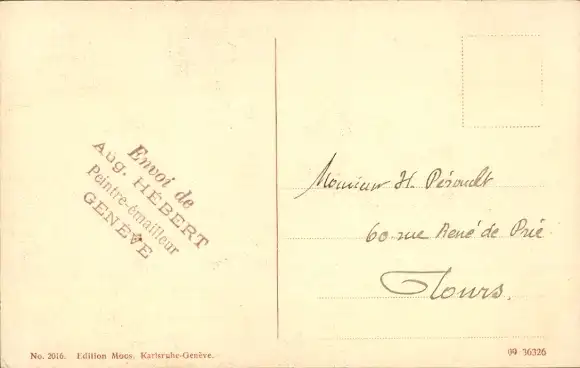 Envoi de
Aug. HÉBERT
Peintre-émailleur
GENÈVE
Monsieur H. Pérault
60 rue René de Prie
Tours.
No. 2016. Edition Moos, Karlsruhe-Genève.
09 36326